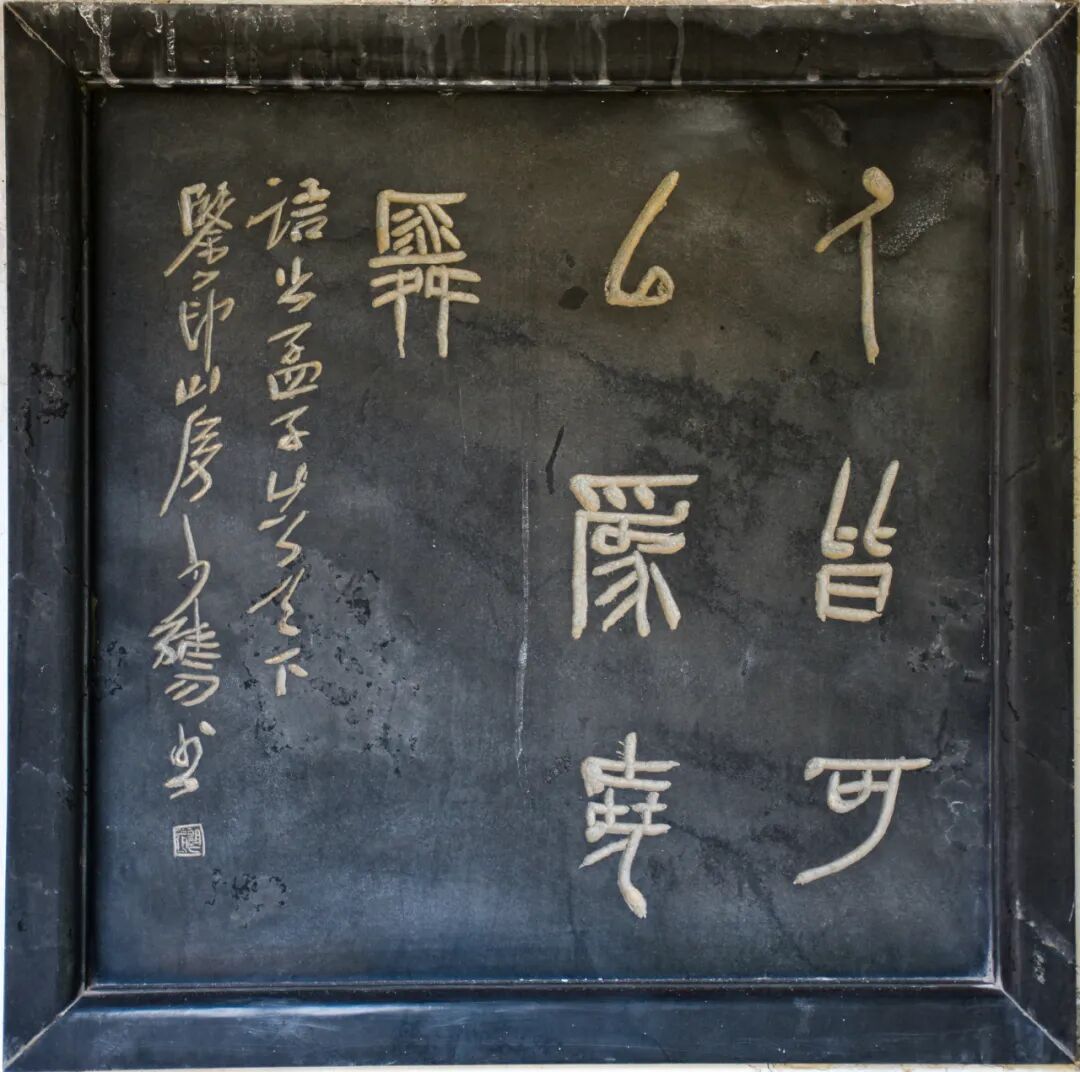 人皆可
以為堯
舜
語出孟子告子下
印山房書